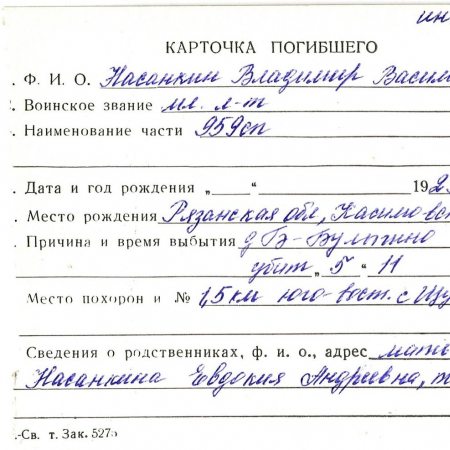 ин
КАРТОЧКА ПОГИБШЕГО
. Ф. И. О. Насанкин Владимир Васил
. Воинское звание мл. л-т
. Наименование части 959сп
. Дата и год рождения „ “ 192
. Место рождения Рязанская обл, Касимовс
. Причина и время выбытия д Б-Булыжино
убит „ 5 “ 11
Место похорон и № 1,5 км юго-вост. с Щу
Сведения о родственниках, ф. и. о., адрес мате
Насанкина Евдокия Андреевна, т
.-Св. т. Зак. 5275